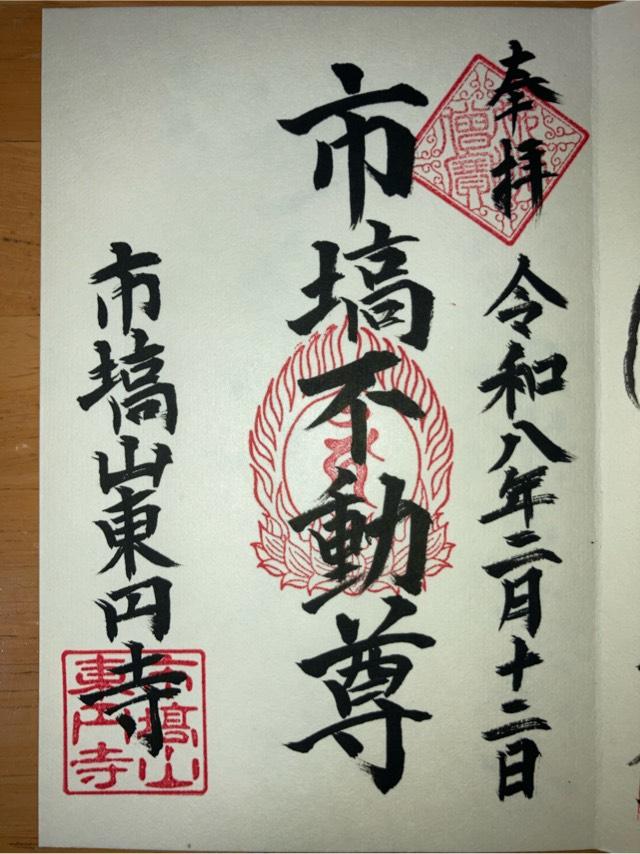 奉拝
令和八年二月十二日
市塙不動尊
市塙山東円寺
市塙山
東円寺